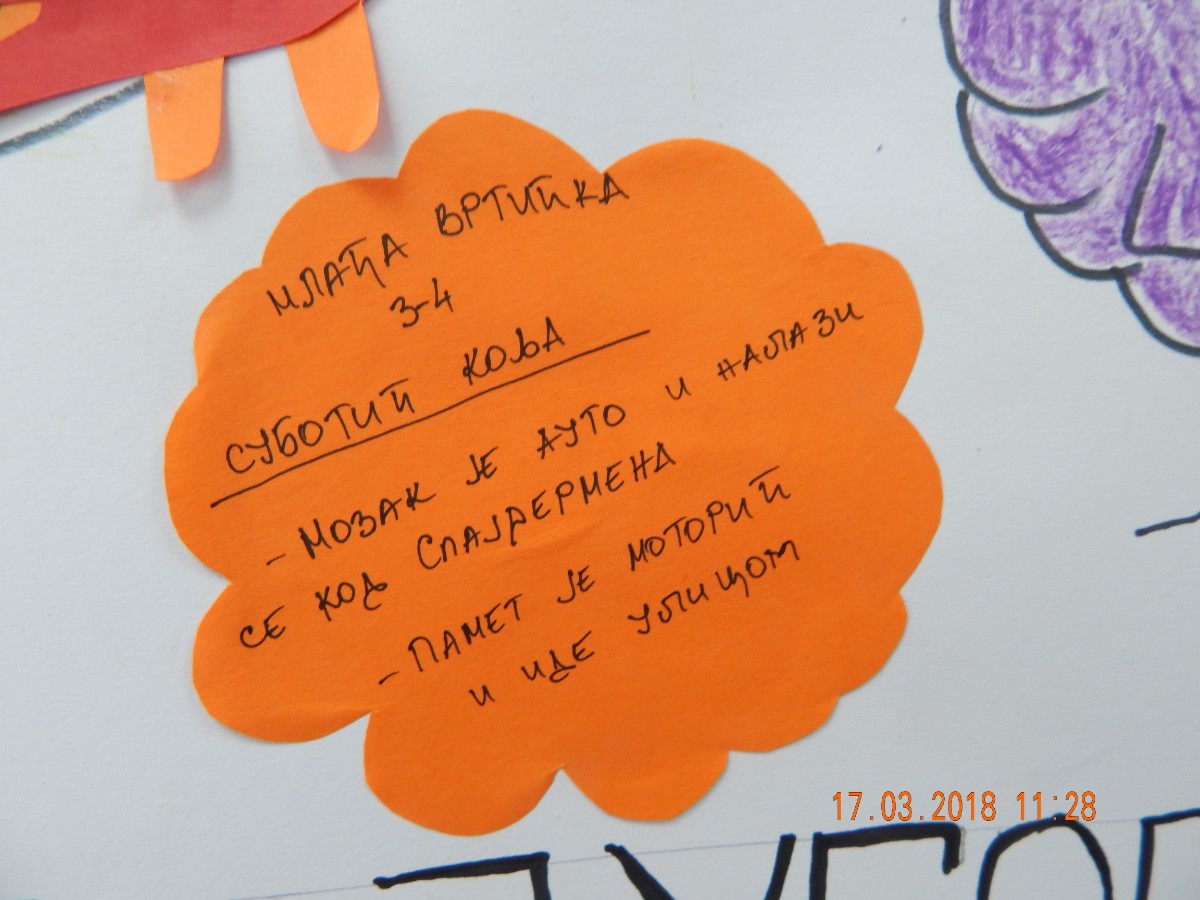 МЛАЂА ВРТИЋКА
3-4
СУБОТИЋ КОЉА
- МОЗАК ЈЕ АУТО И НАЛАЗИ
СЕ КОД СПАЈДЕРМЕНА
- ПАМЕТ ЈЕ МОТОРИЋ
И ИДЕ УЛИЦОМ
17.03.2018 11:28